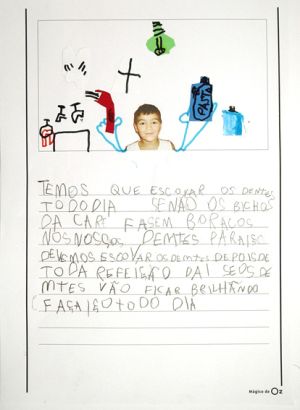 PASTA
TEMOS QUE ESCOVAR OS DENTES
TODO DIA SENÃO OS BICHOS
DA CARI FASEM BORACOS
NOS NOSSOS DEMTES PARA ISC
DEVEMOS ESCOVAR OS DEMTES DEPOIS DE
TODA REFEISÃO DAI SEOS DE
MTES VÃO FICAR BRILHÃNDO
FAÇA ISO TODO DIA
Mágico de Oz